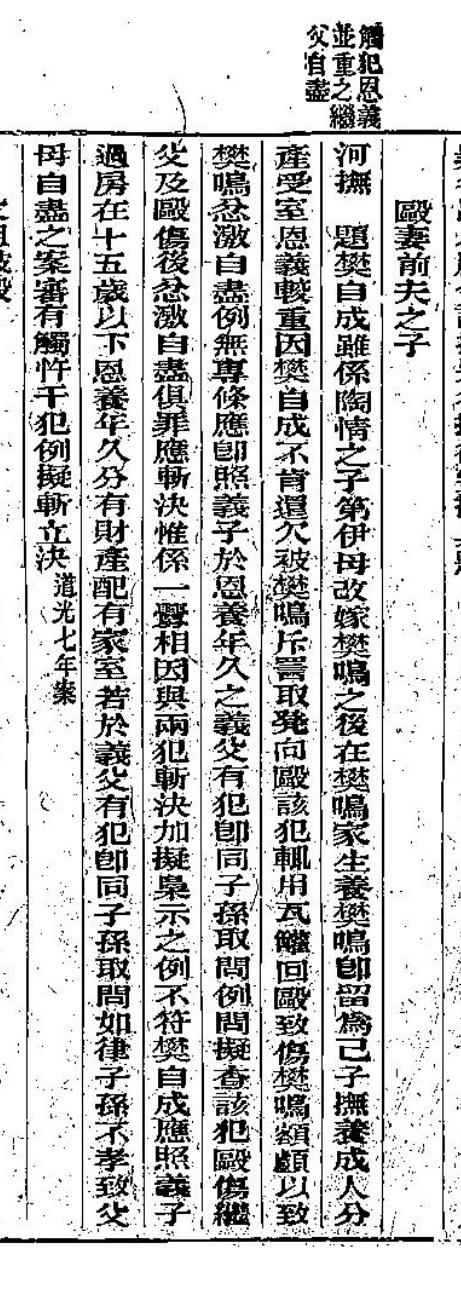 觸犯恩義
並重之繼
父自盡
毆妻前夫之子
河撫　題樊自成雖係陶情之子第伊母改嫁樊鳴之後在樊鳴家生養樊鳴卽留爲己子撫養成人分
產受室恩義較重因樊自成不肯還欠被樊鳴斥詈取凳向毆該犯輒用瓦罐回毆致傷樊鳴額顱以致
樊鳴忿激自盡例無專條應卽照義子於恩養年久之義父有犯卽同子孫取問例問擬查該犯毆傷繼
父及毆傷後忿激自盡俱罪應斬決惟係一釁相因與兩犯斬決加擬梟示之例不符樊自成應照義子
過房在十五歲以下恩養年久分有財產配有家室若於義父有犯卽同子孫取問如律子孫不孝致父
母自盡之案審有觸忤干犯例擬斬立決道光七年案